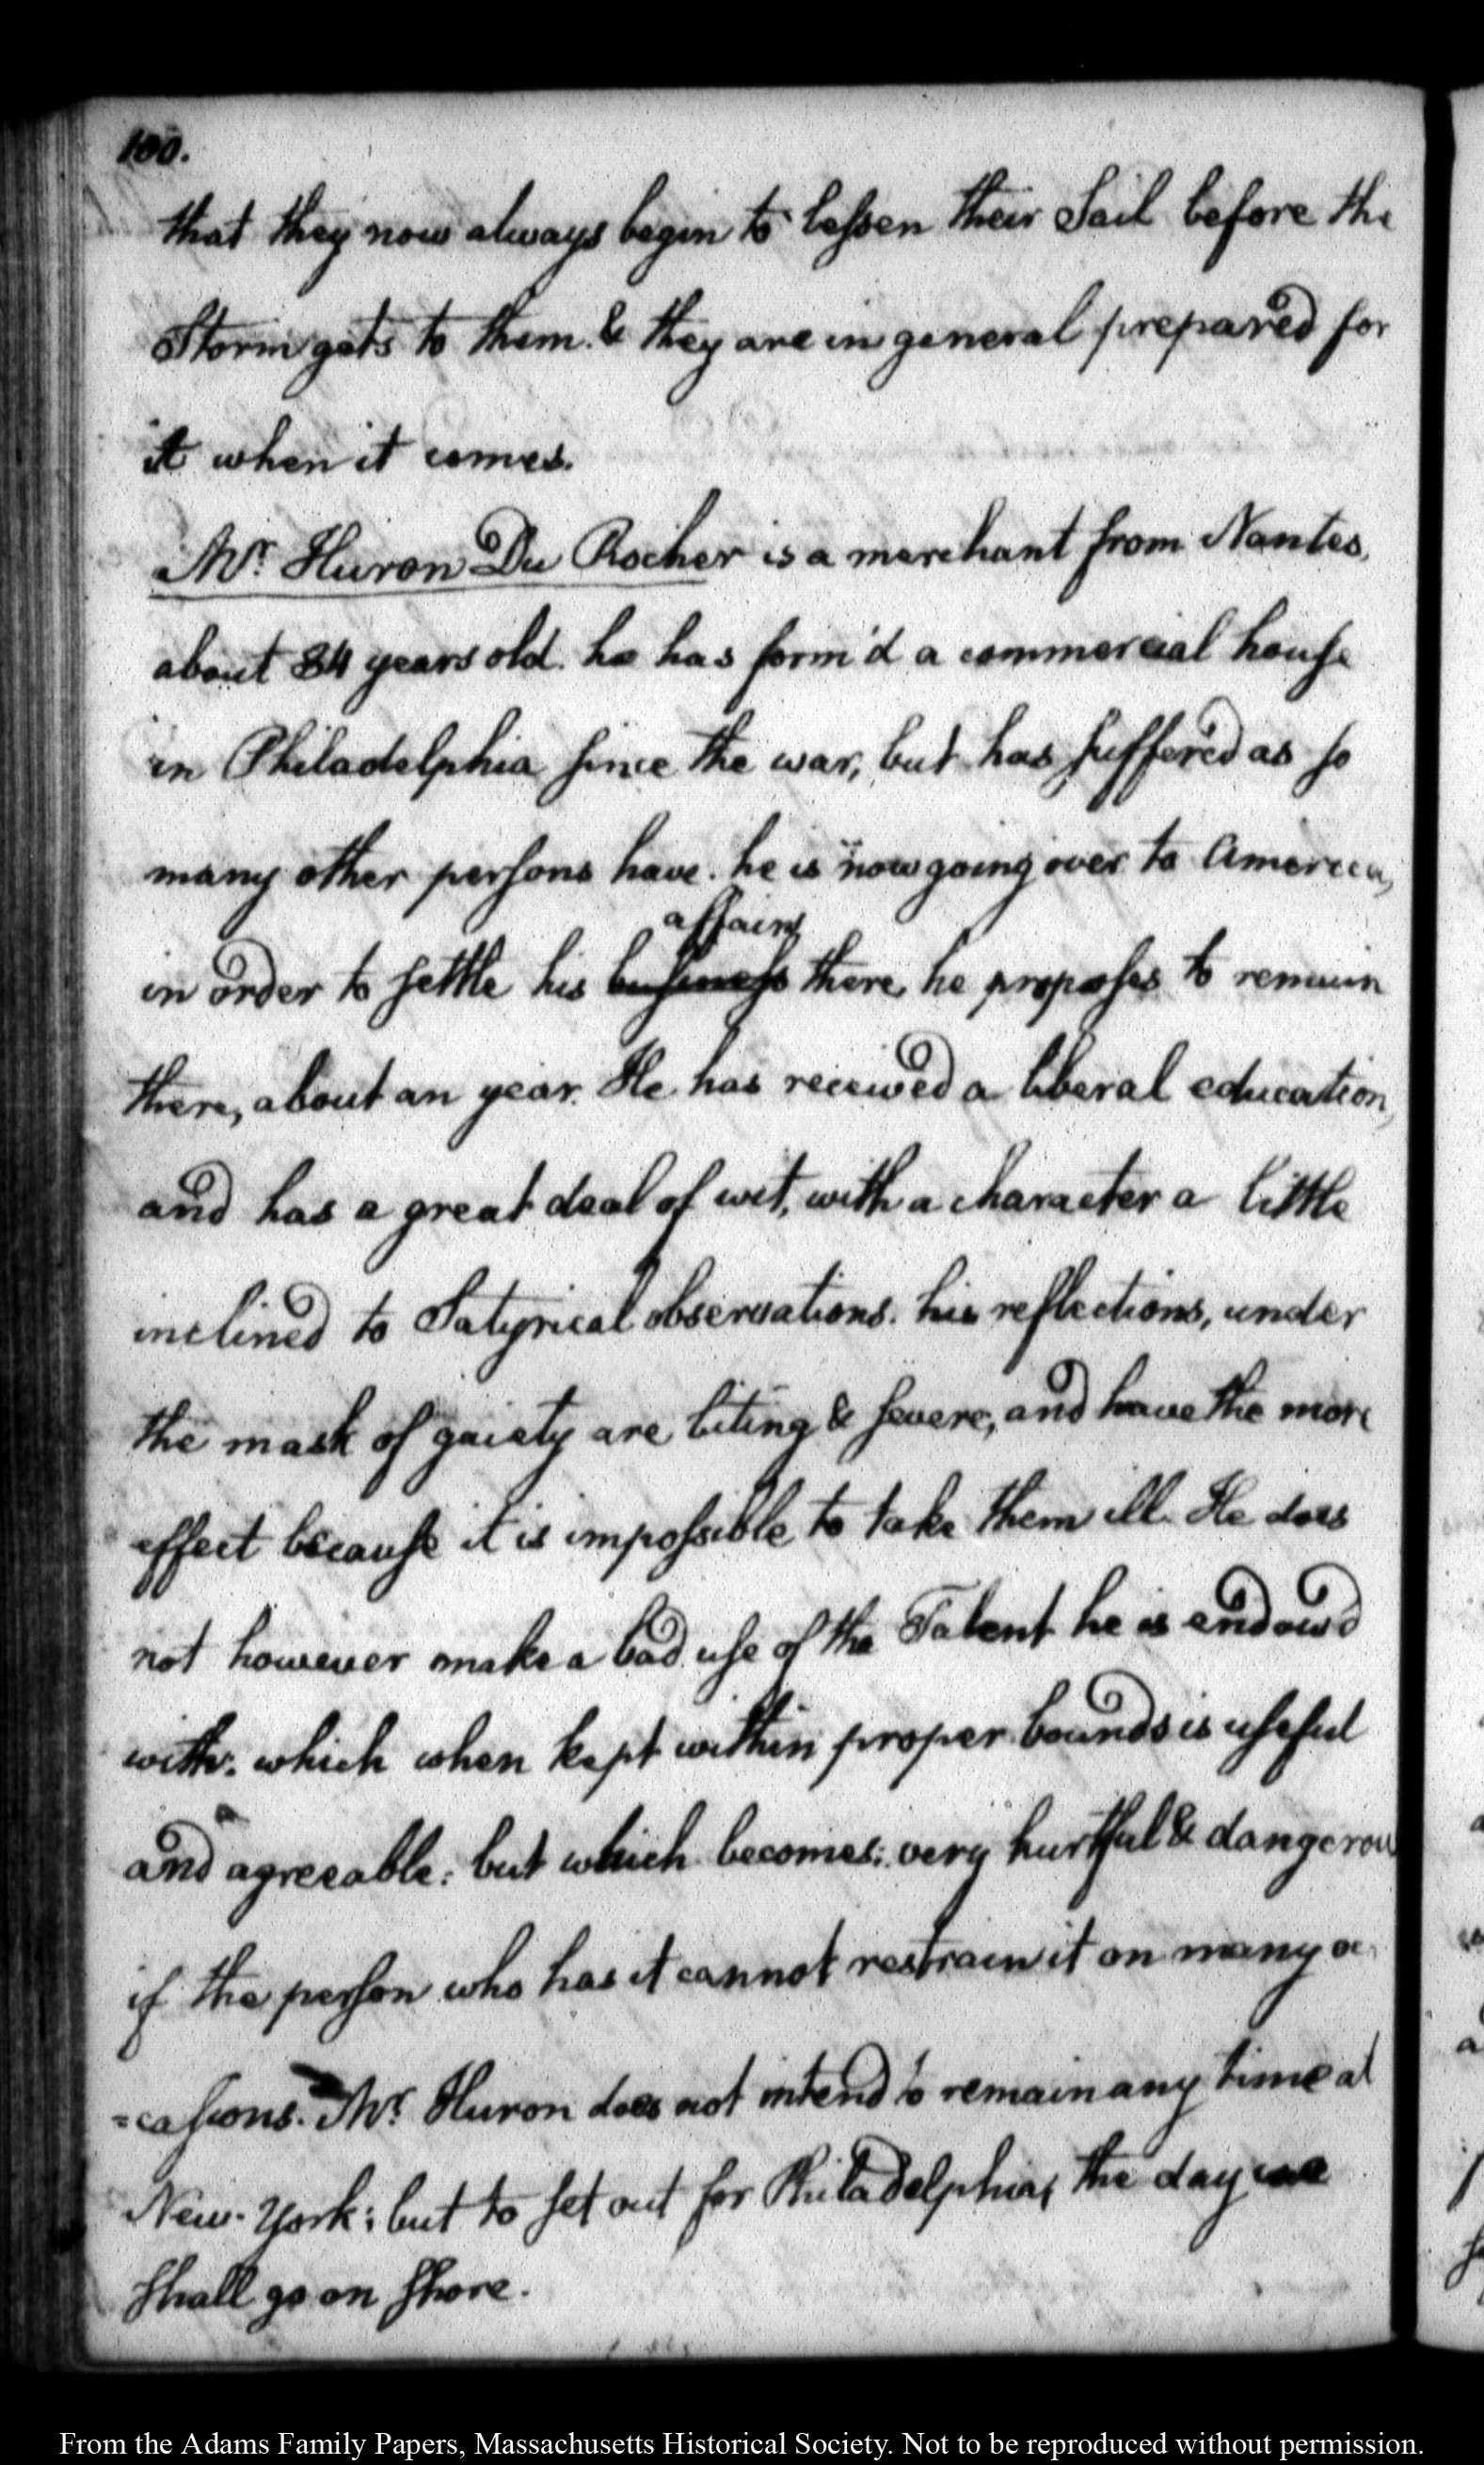 100.
that they now always begin to lessen their Sail before the
Storm gets to them. & they are in general prepared for
it when it comes.
Mr. Huron Du Rocher is a merchant from Nantes,
about 34 years old. he has form'd a commercial house
in Philadelphia since the war, but has suffered as so
many other persons have. he is now going over to America,
affairs
in order to settle his business there, he proposes to remain
there, about an year. He has received a liberal education,
and has a great deal of wit, with a character a little
inclined to Satyrical observations. his reflections, under
the mask of gaiety are biting & severe, and have the more
effect because it is impossible to take them ill. He does
not however make a bad use of the Talent he is endow'd
with. which when kept within proper bounds is useful
and agreeable: but which becomes: very hurtful & dangerous
if the person who has it cannot restrain it on many oc
=casions. Mr. Huron does not intend to remain any time at
New-York; but to set out for Philadelphia, the day we
shall go on shore.
From the Adams Family Papers, Massachusetts Historical Society. Not to be reproduced without permission.